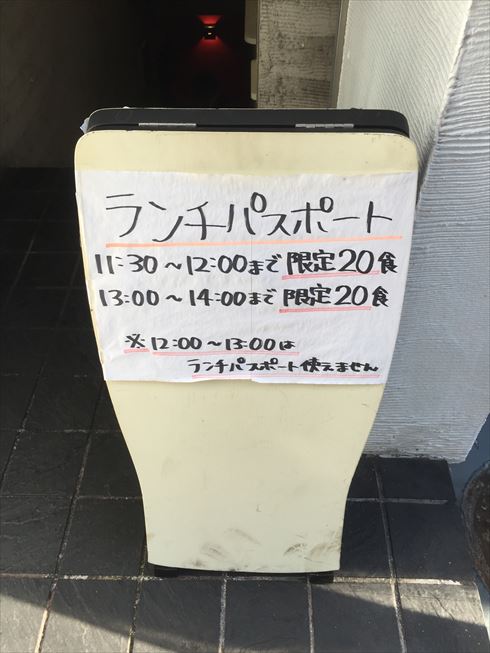 ランチパスポート
11:30〜12:00まで限定20食
13:00〜14:00まで限定20食
※12:00〜13:00は
ランチパスポート使えません